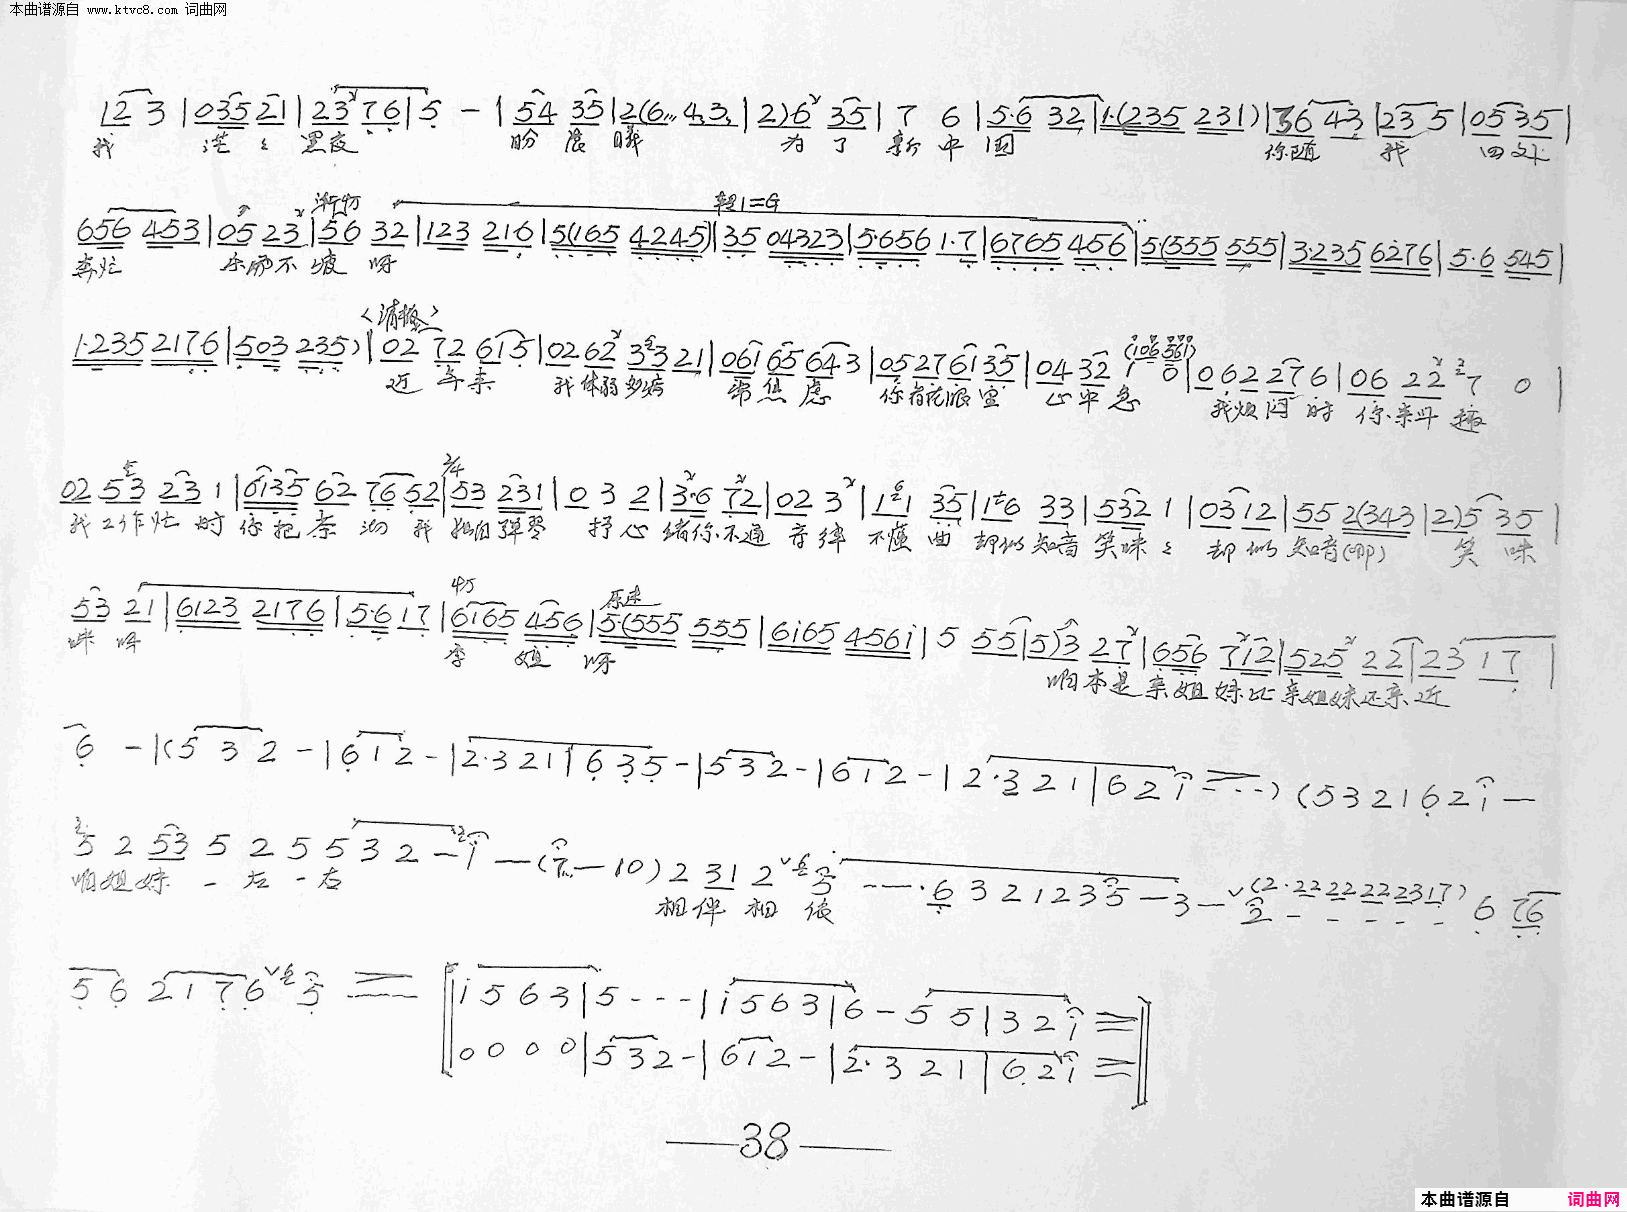 本曲谱源自 www.ktvc8.com 词曲网
123|03521|2376|5 -|54 35|2(6 43|2)6 35|7 6|5·6 32|1·(235 231)|36 43|23 5|0535|
我 茫 黑夜 盼 晨曦 为 了 新 中 国 你随 我 四处
渐切 转1=G
656 453|05 23|56 32|123 216|5(165 4245)|35 04323|5·656 1·7|6765 456|5·(555 555|3·235 6276|5·6 545|
奔忙 不 疲 呀
〈清板〉
1·235 2176|503 235)|02 72 615|02 62 33 21|061 65 643|05 27 61 35|04 32 1 0|062 276|06 22 7 0|
(106 561)
近 年来 我体弱多病 常焦虑 你看在眼里 心中急 我烦闷时 你来 趣
2/4
02 53 231|6135 62 76 52|53 231|0 3 2|3·6 72|02 3|1 1 35|1 6 33|532 1|0312|55 2(343|2)5 35|
我工作忙 时 你把茶 沏 我 弹琴 抒心绪你不通 音律 不懂 曲 却似知音 笑咪 却似 知音 笑 咪
切 原速
53 21|6123 2176|5·6 17|6165 456|5(555 555|6i65 456i|5 55|5)3 27|656 712|525 22|23 17|
咪 呀 李 姐 呀 咱本是亲姐妹比亲姐妹还亲近
6 -|(5 3 2 -|6 1 2 -|2·3 2 1|6 3 5 -|5 3 2 -|6 1 2 -|2·3 2 1|6 2 i - - -) (5 3 2 1 6 2 i —
5 2 53 5 2 5 5 3 2 - i — (7 — 10) 2 31 2 3 - - - ·6 3 2 1 2 3 5 — 3 — 2 - - - - - 6 76
(2·22 22 22 23 17)
咱姐妹 一 左 一右 相伴 相 依
5 6 2 1 7 6 5
i 5 6 3|5 - - -|i 5 6 3|6 - 5 5|3 2 i
0 0 0 0|5 3 2 -|6 1 2 -|2·3 2 1|6 2 i
——38——
本曲谱源自 词曲网